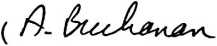 (A. Buchanan